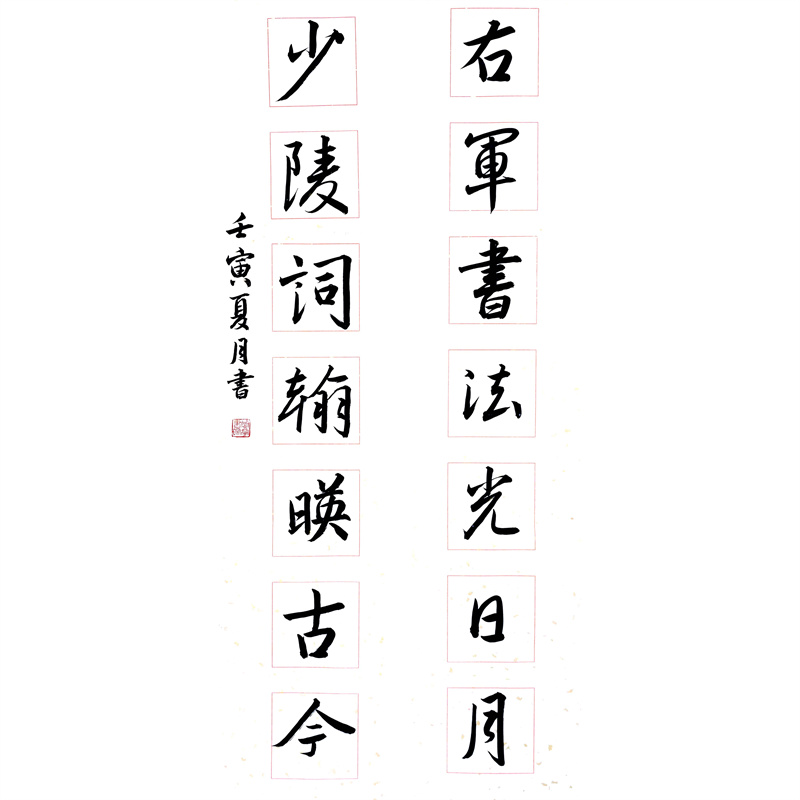 右軍書法光日月
少陵詞翰暎古今
壬寅夏月書